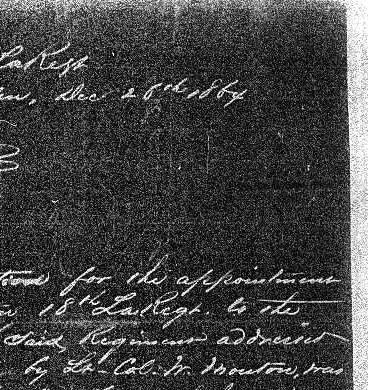 La Regt
Dec 26th 1864
for the appointment
18th La Regt. to the
said Regiment addressed
by Lt-Col. W. Mouton, was